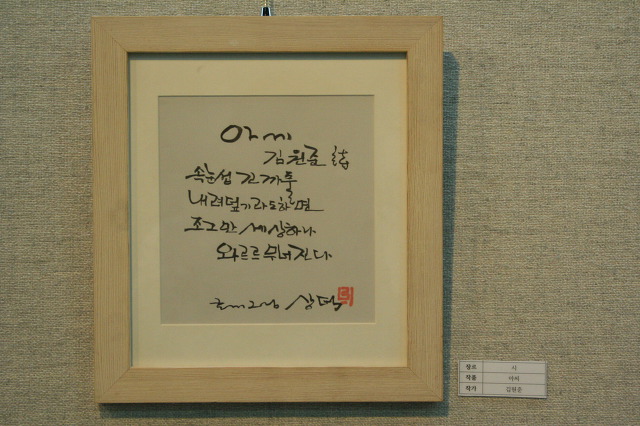 아씨
김원길 詩
속눈썹 긴 까풀
내려덮기라도 하면
조그만 세상 하나
와르르 무너진다
상덕
장르 시
작품 아씨
작가 김원길